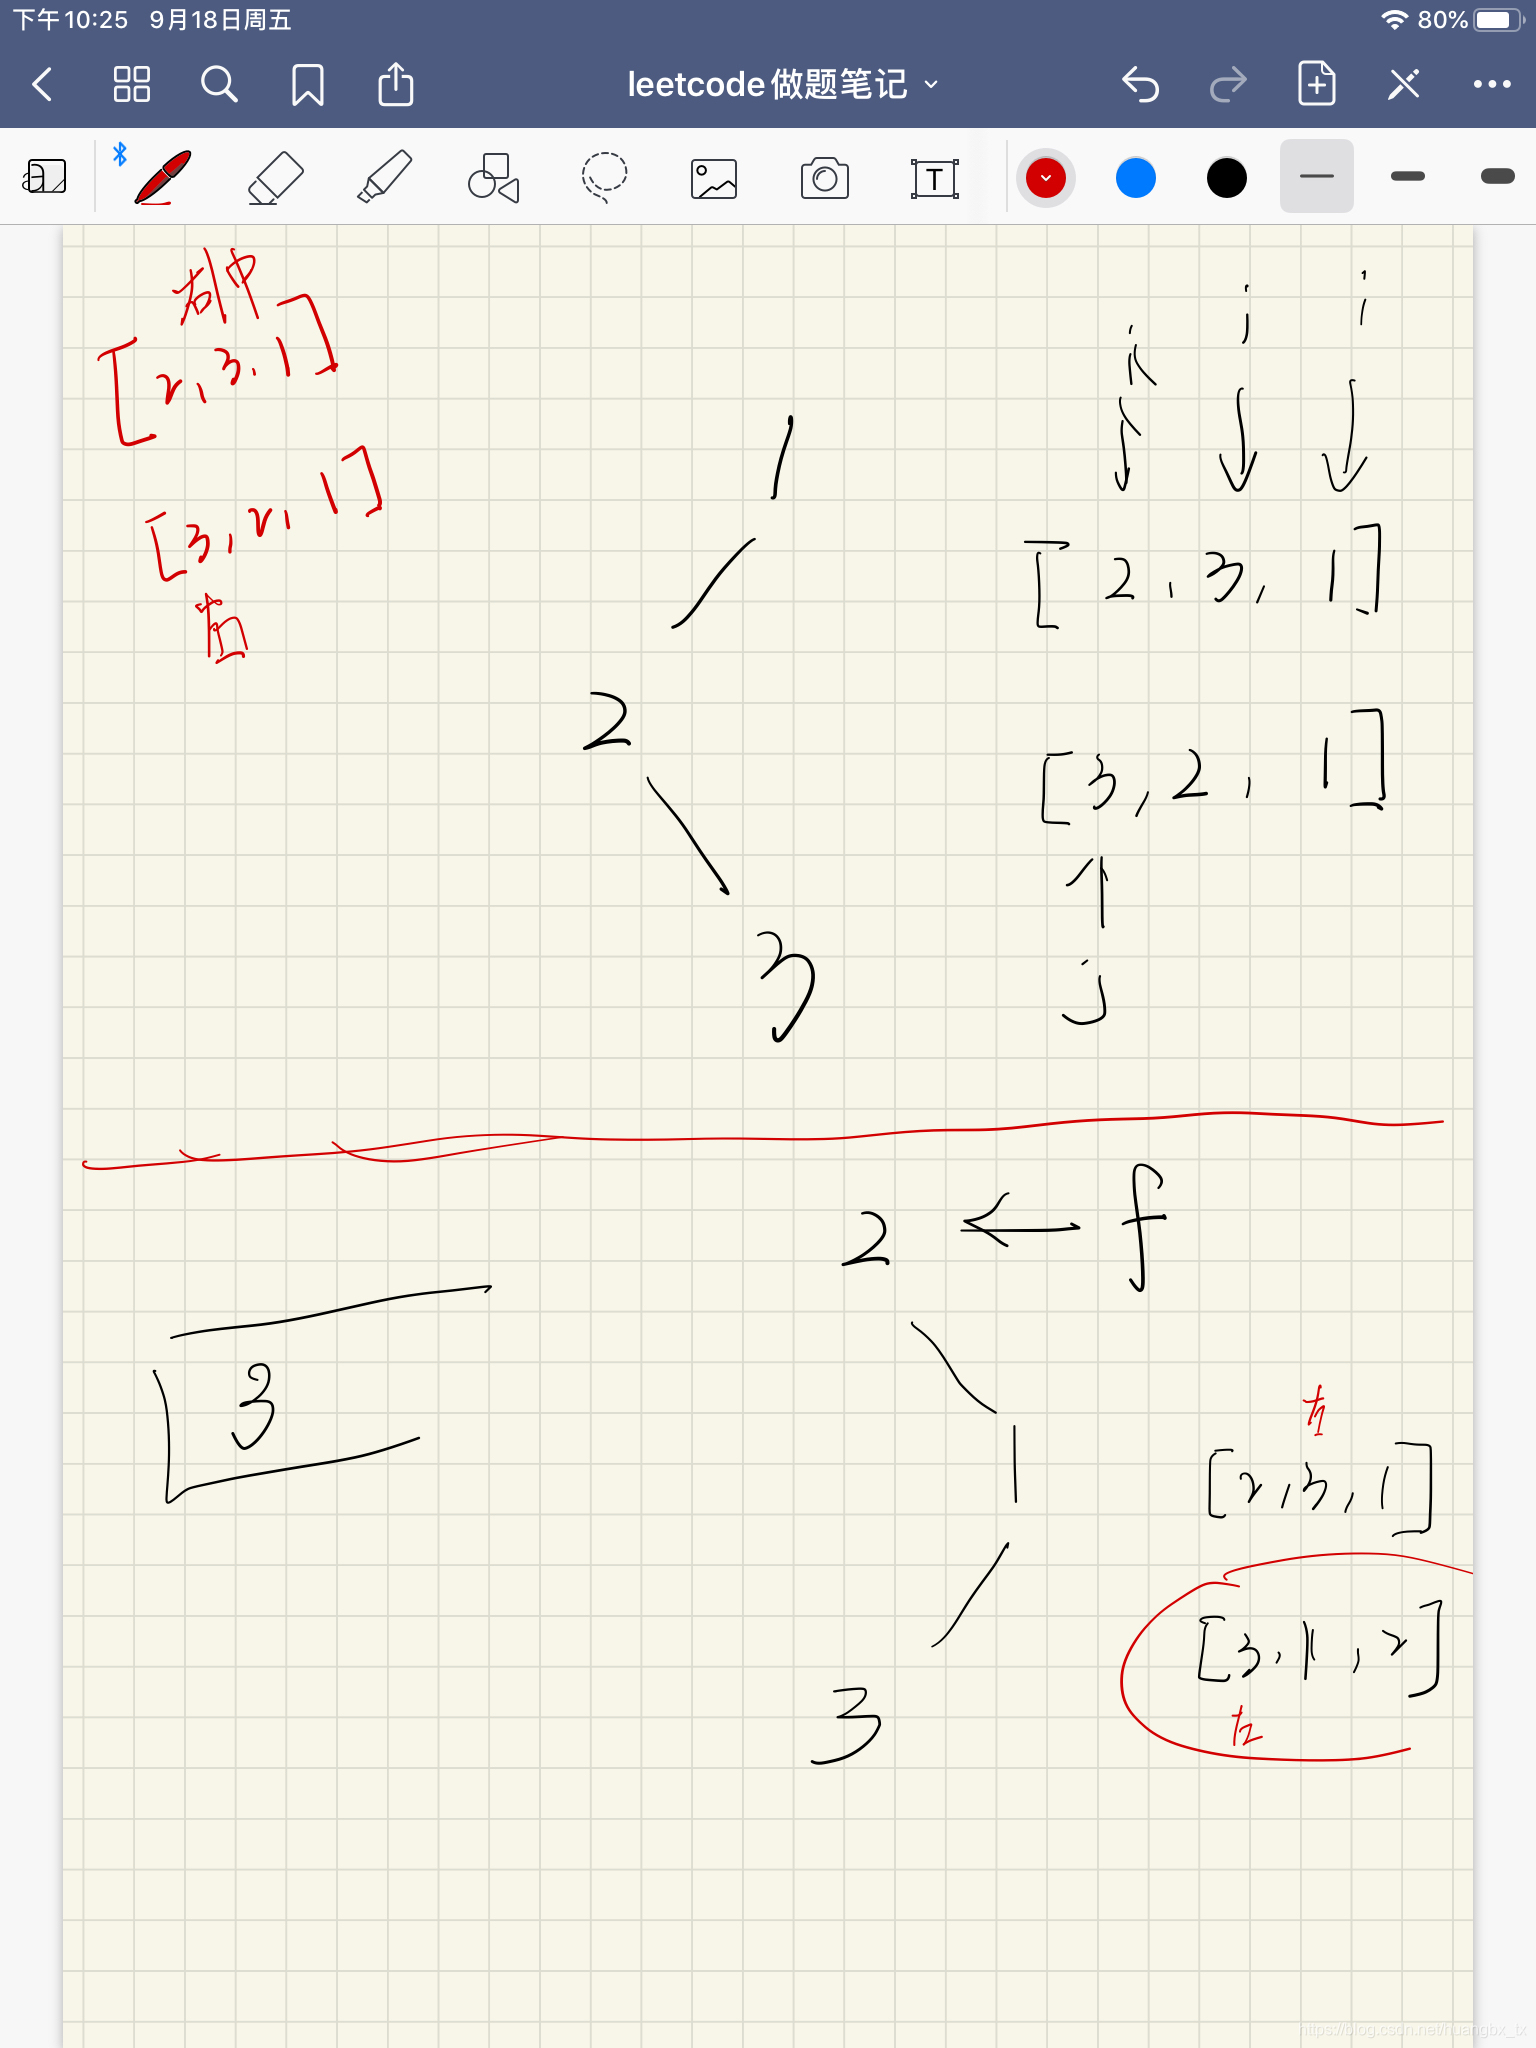 下午10:25 9月18日周五
80%
leetcode 做题笔记
T
中
[2, 3, 1]
[3, 2, 1]
k j i
1
[2, 3, 1]
2
[3, 2, 1]
3
j
2 ← f
3
1
[2, 3, 1]
[3, 1, 2]
3
https://blog.csdn.net/huangbx_tx